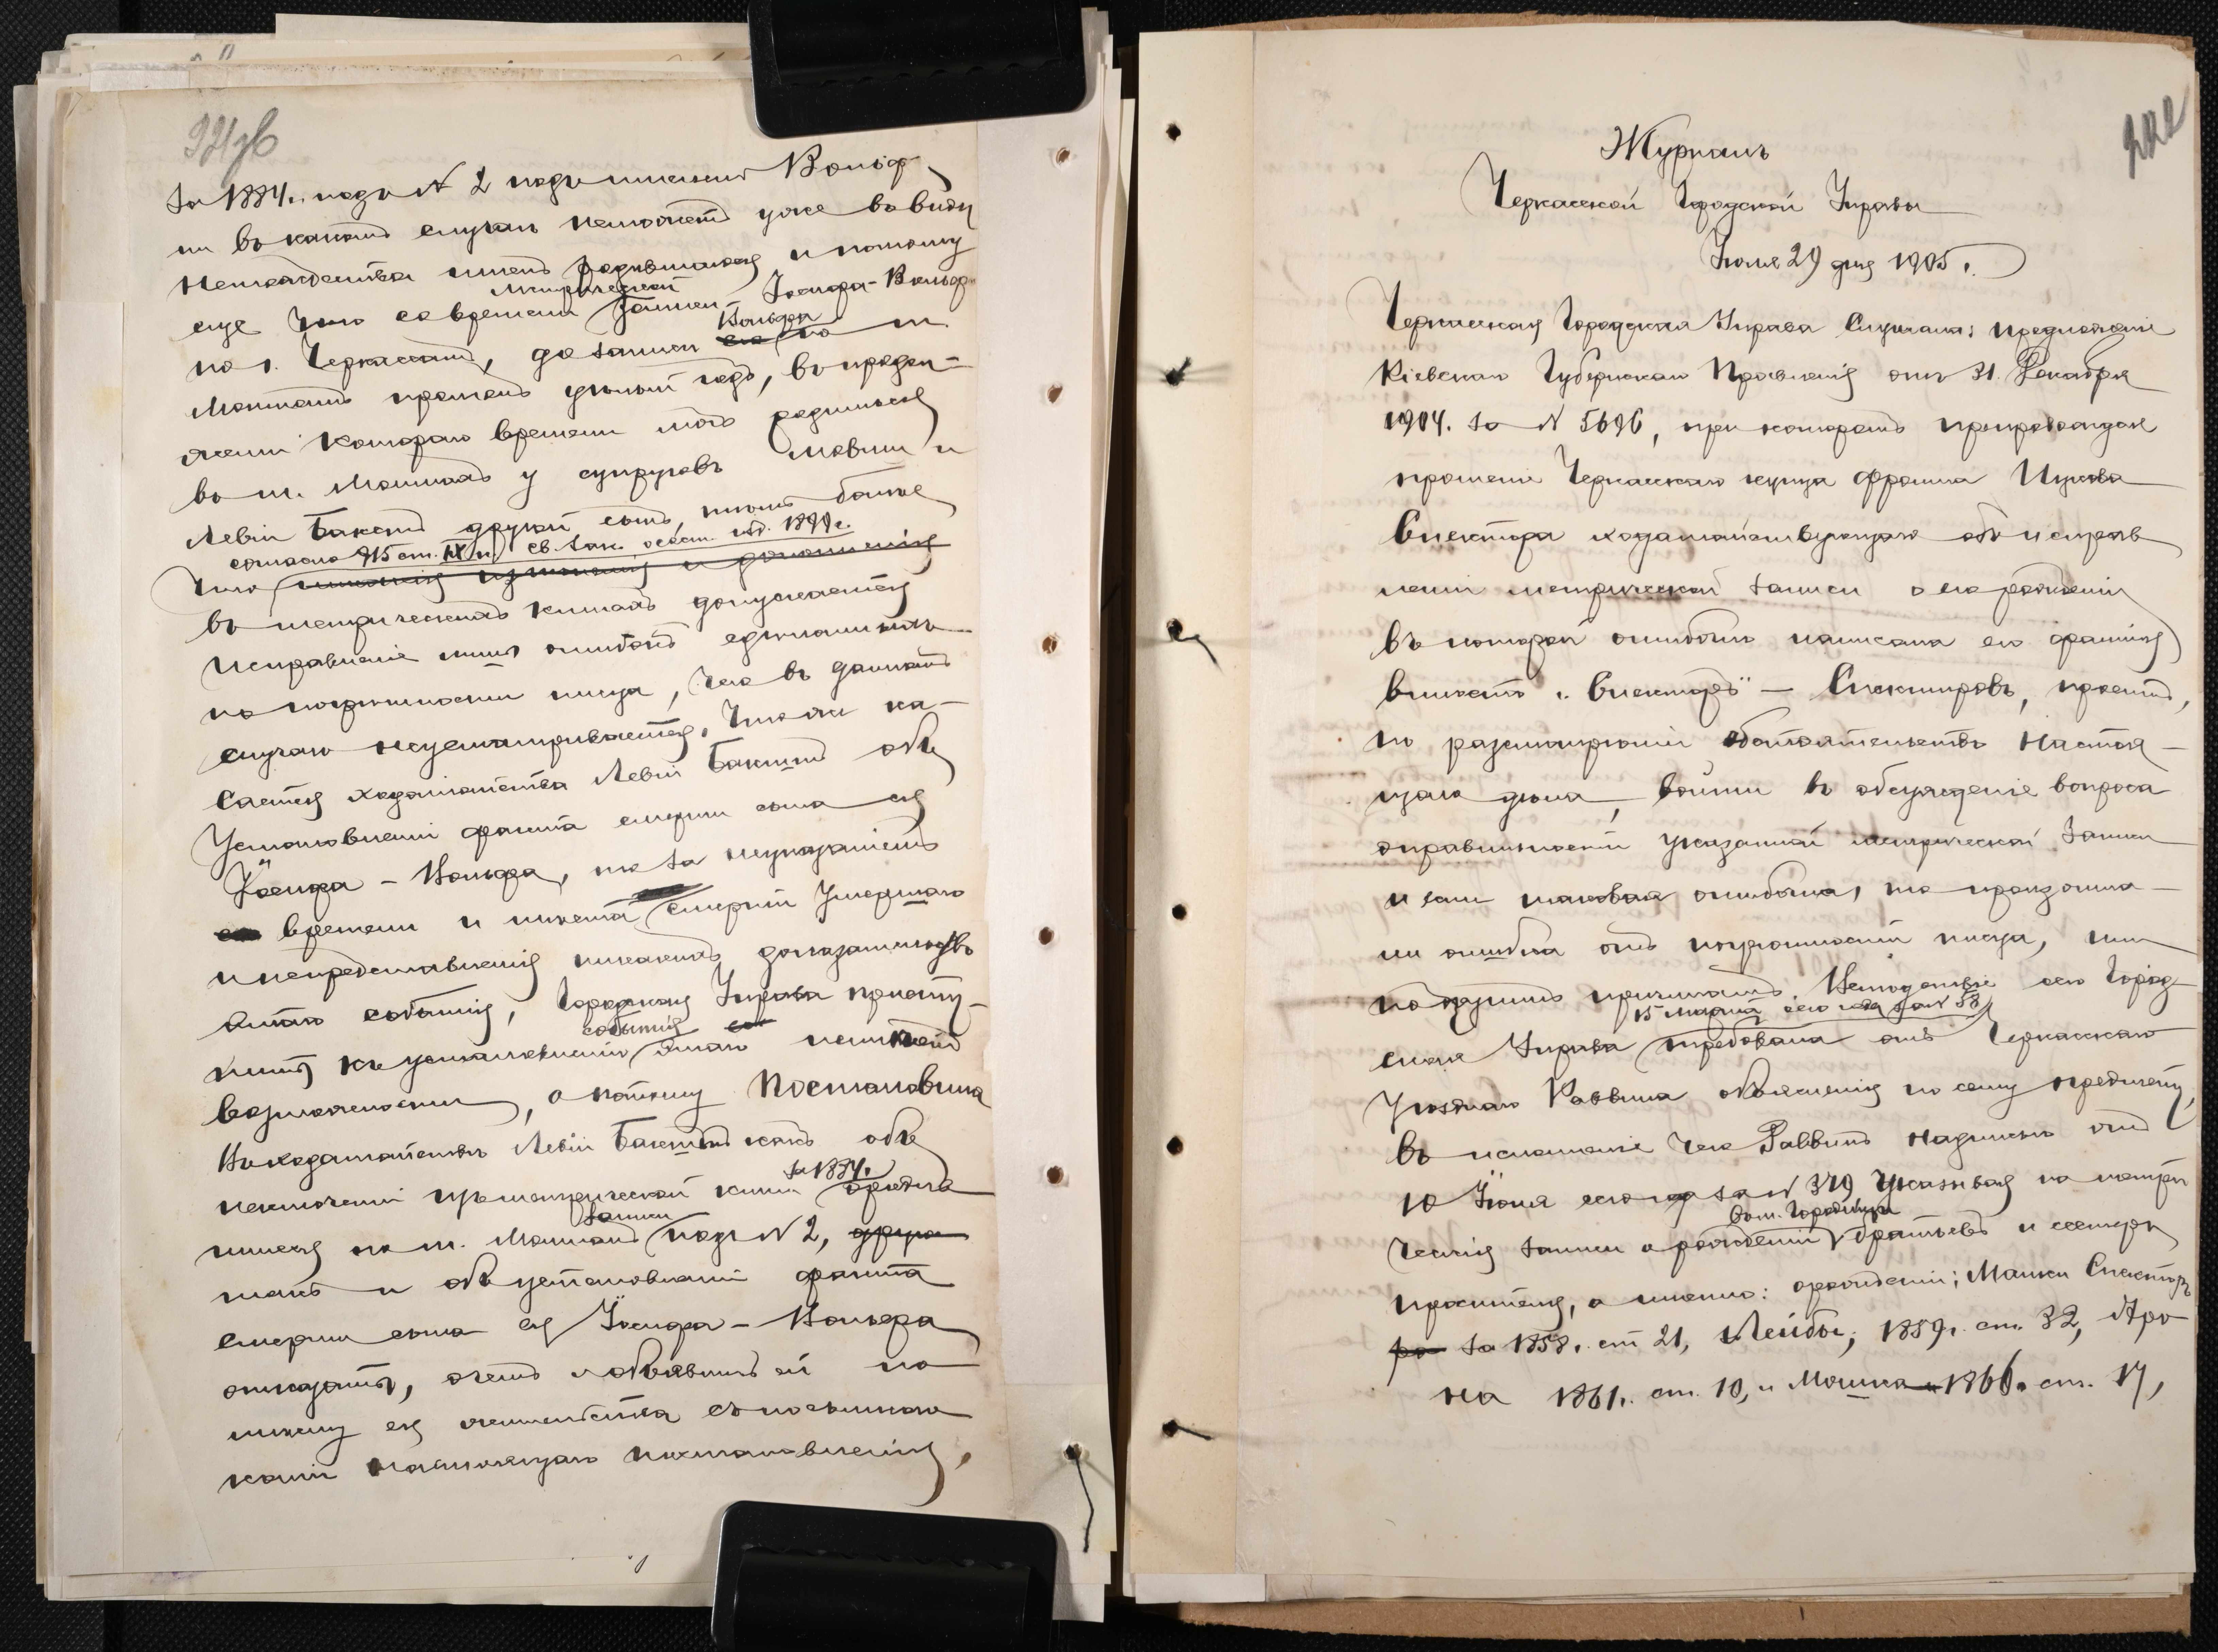 за 1884 г. подъ № 2 подъ именемъ Вольф
ни въ какомъ случаѣ неможетъ уже въ виду
нетождества именъ родившагося и потому
еще что со времени метрической записи Іосифа-Вольфа
по г. Черкассамъ, до записи Вольфа по м.
Мошнамъ прошелъ цѣлый годъ, въ продол-
женіи котораго времени могъ родиться
въ м. Мошнахъ у супруговъ и
Левіи Бакстъ другой сынъ, тѣмъ болѣе
согласно 915 ст. IX т. св. зак. о сост. изд. 1899 г.
что
въ метрическихъ книгахъ допускается
исправленіе лишь ошибокъ единственно
по погрѣшности писца, чего въ данномъ
случаѣ неусматривается. Что же ка-
сается ходатайства Левіи Бакстъ объ
установленіи факта смерти сына ея
Іосифа-Вольфа, то за неуказаніемъ
времени и мѣста смерти умершаго
и непредставленія никакихъ доказательствъ
этого событія, Городская Управа присту-
пить къ установленію этого событія неимѣетъ
возможности, а потому Постановила
Въ ходатайствѣ Левіи Бакстъ какъ объ
исключеніи изъ метрической книги за 1884 г. о родив-
шихся по м. Мошнамъ записи подъ № 2,
такъ и объ установленіи факта
смерти сына ея Іосифа-Вольфа
отказать, о чемъ и объявить ей по
мѣсту ея жительства съ посылкою
копіи настоящаго постановленія.
Журналъ
Черкасской Городской Управы
Іюля 29 дня 1905 г.
Черкасская Городская Управа Слушала: предложеніе
Кіевскаго Губернскаго Правленія отъ 31 Декабря
1904 г. за № 5696, при которомъ препровождая
прошеніе Черкасскаго купца Фроима
Спектора ходатайствующаго объ исправ
леніи метрической записи о его рожденіи
въ которой ошибочно написана его фамилія
вмѣсто „Спекторъ" — Спекторовъ, проситъ,
по разсмотрѣніи обстоятельствъ настоя-
щаго дѣла, войти въ обсужденіе вопроса
о правильности указанной метрической записи
и если таковая ошибочна, то произошла-
ли ошибка отъ погрѣшности писца, или
по другимъ причинамъ. Вслѣдствіе сего Город-
ская Управа 15 Марта сего года за № 58 требовала отъ Черкасскаго
Уѣзднаго Раввина объясненія по сему предмету,
въ исполненіе чего Раввинъ надписью отъ
10 Іюня сего года за № 379 указывая на метри
ческія записи о рожденіи въ м. Городищѣ братьевъ и сестеръ
просителя, а именно: о рожденіи; Малки Спекторъ
за 1858 г. ст 21, Лейбы, 1859 г. ст. 32, Аро
на 1861 г. ст. 10, и Мошка 1866 г. ст. 17,